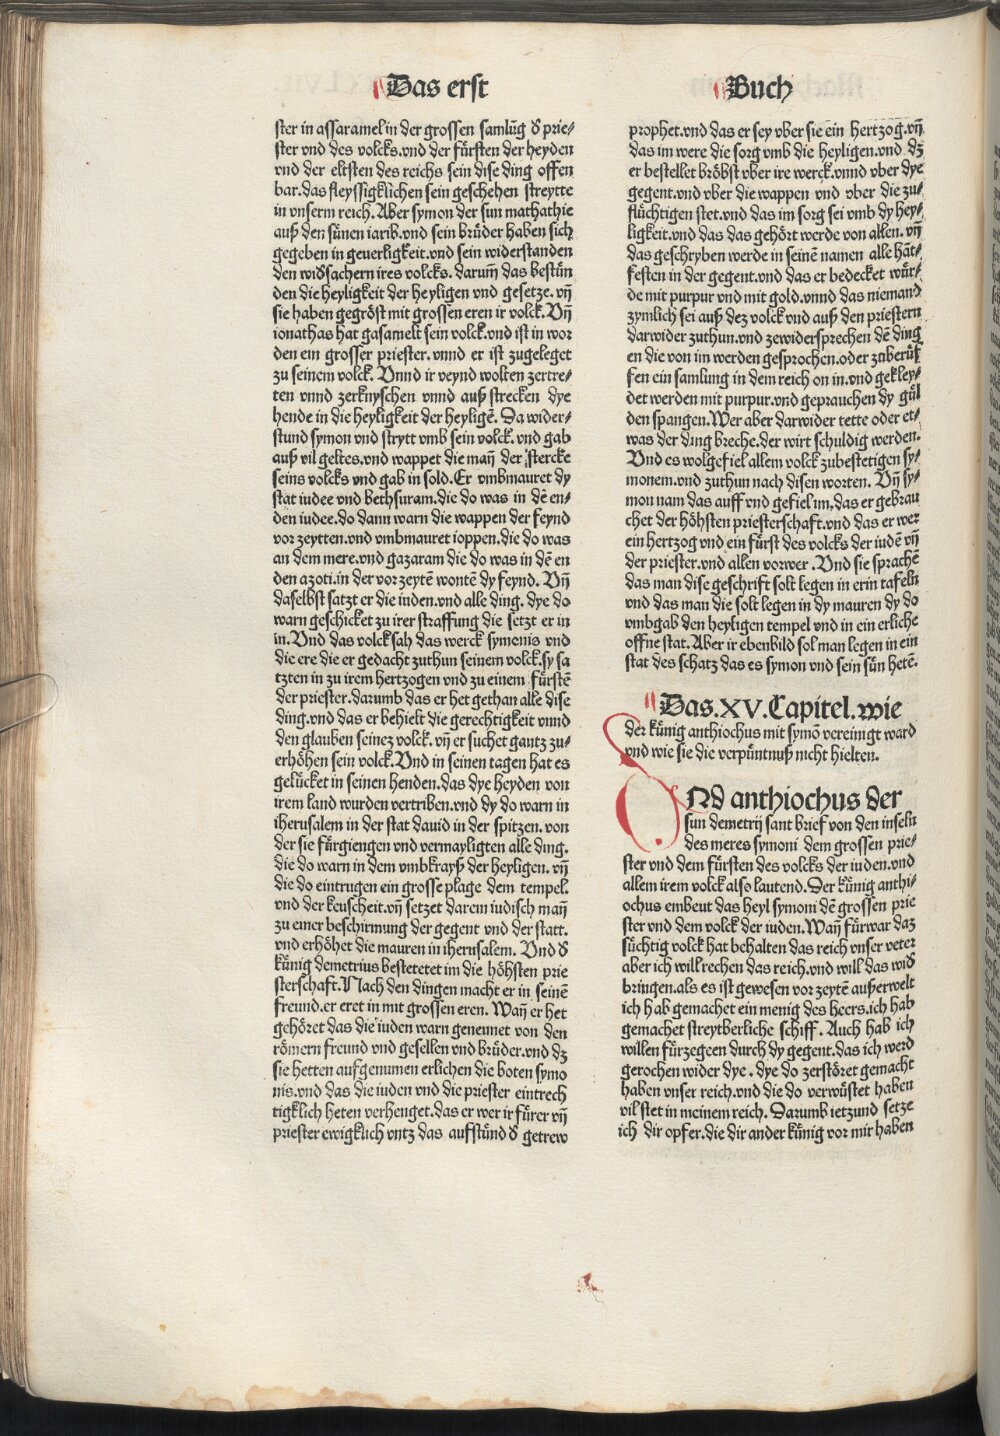 Das erst
Buch
ster in assaramel in der grossen samlūg ď prie⸗
ster vnd des volcks.vnd der fürsten der heyden
vnd der eltsten des reichs sein dise ding offen
bar.das fleyssigklichen sein geschehen streytte
in vnserm reich. Aber symon der sun mathathie
auß den sünen iarib.vnd sein brüder haben sich
gegeben in geuerligkeit.vnd sein widerstanden
den widsachern ires volcks. darum̄ das bestün
den die heyligkeit der heyligen vnd gesetze. vn̄
sie haben gegröst mit grossen eren ir volck. Vn̄
ionathas hat gasamelt sein volck.vnd ist in wor
den ein grosser priester. vnnd er ist zugeleget
zu seinem volck. Vnnd ir veynd wolten zertre⸗
ten vnnd zerknyschen vnnd auß strecken dye
hende in die heyligkeit der heyligē. Da wider⸗
stund symon vnd strytt vmb sein volck. vnd gab
auß vil geltes.vnd wappet die man̄ der stercke
seins volcks vnd gab in sold. Er vmbmauret dy
stat iudee vnd bethsuram.die do was in dē en⸗
den iudee.do dann warn die wappen der feynd
vor zeytten.vnd vmbmauret ioppen.die do was
an dem mere.vnd gazaram die do was in dē en
den azoti.in der vor zeytē wontē dy feynd. Vn̄
daselbst satzt er die iuden.vnd alle ding. dye do
warn geschicket zu irer straffung die setzt er in
in.Vnd das volck sah das werck symonis vnd
die ere die er gedacht zuthun seinem volck.sy sa
tzten in zu irem hertzogen vnd zu einem fürstē
der priester.darumb das er het gethan alle dise
ding.vnd das er behielt die gerechtigkeit vnnd
den glauben seinez volck. vn̄ er suchet gantz zu⸗
erhöhen sein volck.Vnd in seinen tagen hat es
gelücket in seinen henden.das dye heyden von
irem land wurden vertriben.vnd dy do warn in
iherusalem in der stat dauid in der spitzen. von
der sie fürgiengen vnd vermayligten alle ding.
die do warn in dem vmbkrayß der heyligen. vn̄
die do eintrugen ein grosse plage dem tempel.
vnd der keuscheit.vn̄ setzet darein iudisch man̄
zu einer beschirmung der gegent vnd der statt.
vnd erhöhet die mauren in iherusalem. Vnd ď
künig demetrius bestetetet im die höhsten prie
sterschaft.Nach den dingen macht er in seinē
freund.er eret in mit grossen eren. Wan̄ er het
gehöret das die iuden warn genennet von den
römern freund vnd gesellen vnd brüder.vnd dz
sie hetten aufgenumen erlichen die boten symo
nis.vnd das die iuden vnd die priester eintrech
tigklich heten verhenget.das er wer ir fürer vn̄
priester ewigklich vntz das aufstünd ď getrew
prophet.vnd das er sey vber sie ein hertzog.vn̄
das im were die sorg vmb die heyligen.vnd dz
er bestellet bröbst vber ire werck.vnnd vber dye
gegent.vnd vber die wappen vnd vber die zu⸗
flüchtigen stet.vnd das im sorg sei vmb dy hey⸗
ligkeit.vnd das das gehört werde von allen. vn̄
das geschryben werde in seinē namen alle hāt⸗
festen in der gegent.vnd das er bedecket würr⸗
de mit purpur vnd mit gold.vnnd das niemand
zymlich sei auß dez volck vnd auß den priestern
darwider zuthun.vnd zewidersprechen dē ding
en die von im werden gesprochen.oder zuberüf
fen ein samlung in dem reich on in.vnd gekley⸗
det werden mit purpur.vnd geprauchen dy gül
den spangen.Wer aber darwider tette oder et⸗
was der ding breche.der wirt schuldig werden.
Vnd es wolgefiel allem volck zubestetigen sy⸗
monem.vnd zuthun nach disen worten. Vn̄ sy⸗
mon nam das auff vnd gefiel im.das er gebrau
chet der höhsten priesterschaft.vnd das er wer
ein hertzog vnd ein fürst des volcks der iudē vn̄
der priester.vnd allen vorwer. Vnd sie sprachē
das man dise geschrift solt legen in erin tafeln
vnd das man die solt legen in dy mauren dy do
vmbgab den heyligen tempel vnd in ein erliche
offne stat. Aber ir ebenbild sol man legen in ein
stat des schatz das es symon vnd sein sün hetē.
Das.XV.Capitel.wie
der künig anthiochus mit symō vereinigt ward
vnd wie sie die verpüntnuß nicht hielten.
VNd anthiochus der
sun demetrij sant brief von den inseln
des meres symoni dem grossen prie⸗
ster vnd dem fürsten des volcks der iuden.vnd
allem irem volck also lautend. Der künig anthi⸗
ochus embeut das heyl symoni dē grossen prie
ster vnd dem volck der iuden. Wan̄ fürwar daz
süchtig volck hat behalten das reich vnser veter
aber ich will rechen das reich.vnd will das wid
bringen.als es ist gewesen vor zeytē außerwelt
ich hab gemachet ein menig des heers.ich hab
gemachet streytberliche schiff. Auch hab ich
willen fürzegeen durch dy gegent.das ich werd
gerochen wider dye. dye do zerstöret gemacht
haben vnser reich.vnd die do verwüstet haben
vil stet in meinem reich. Darumb ietzund setze
ich dir opfer.die dir ander künig vor mir haben